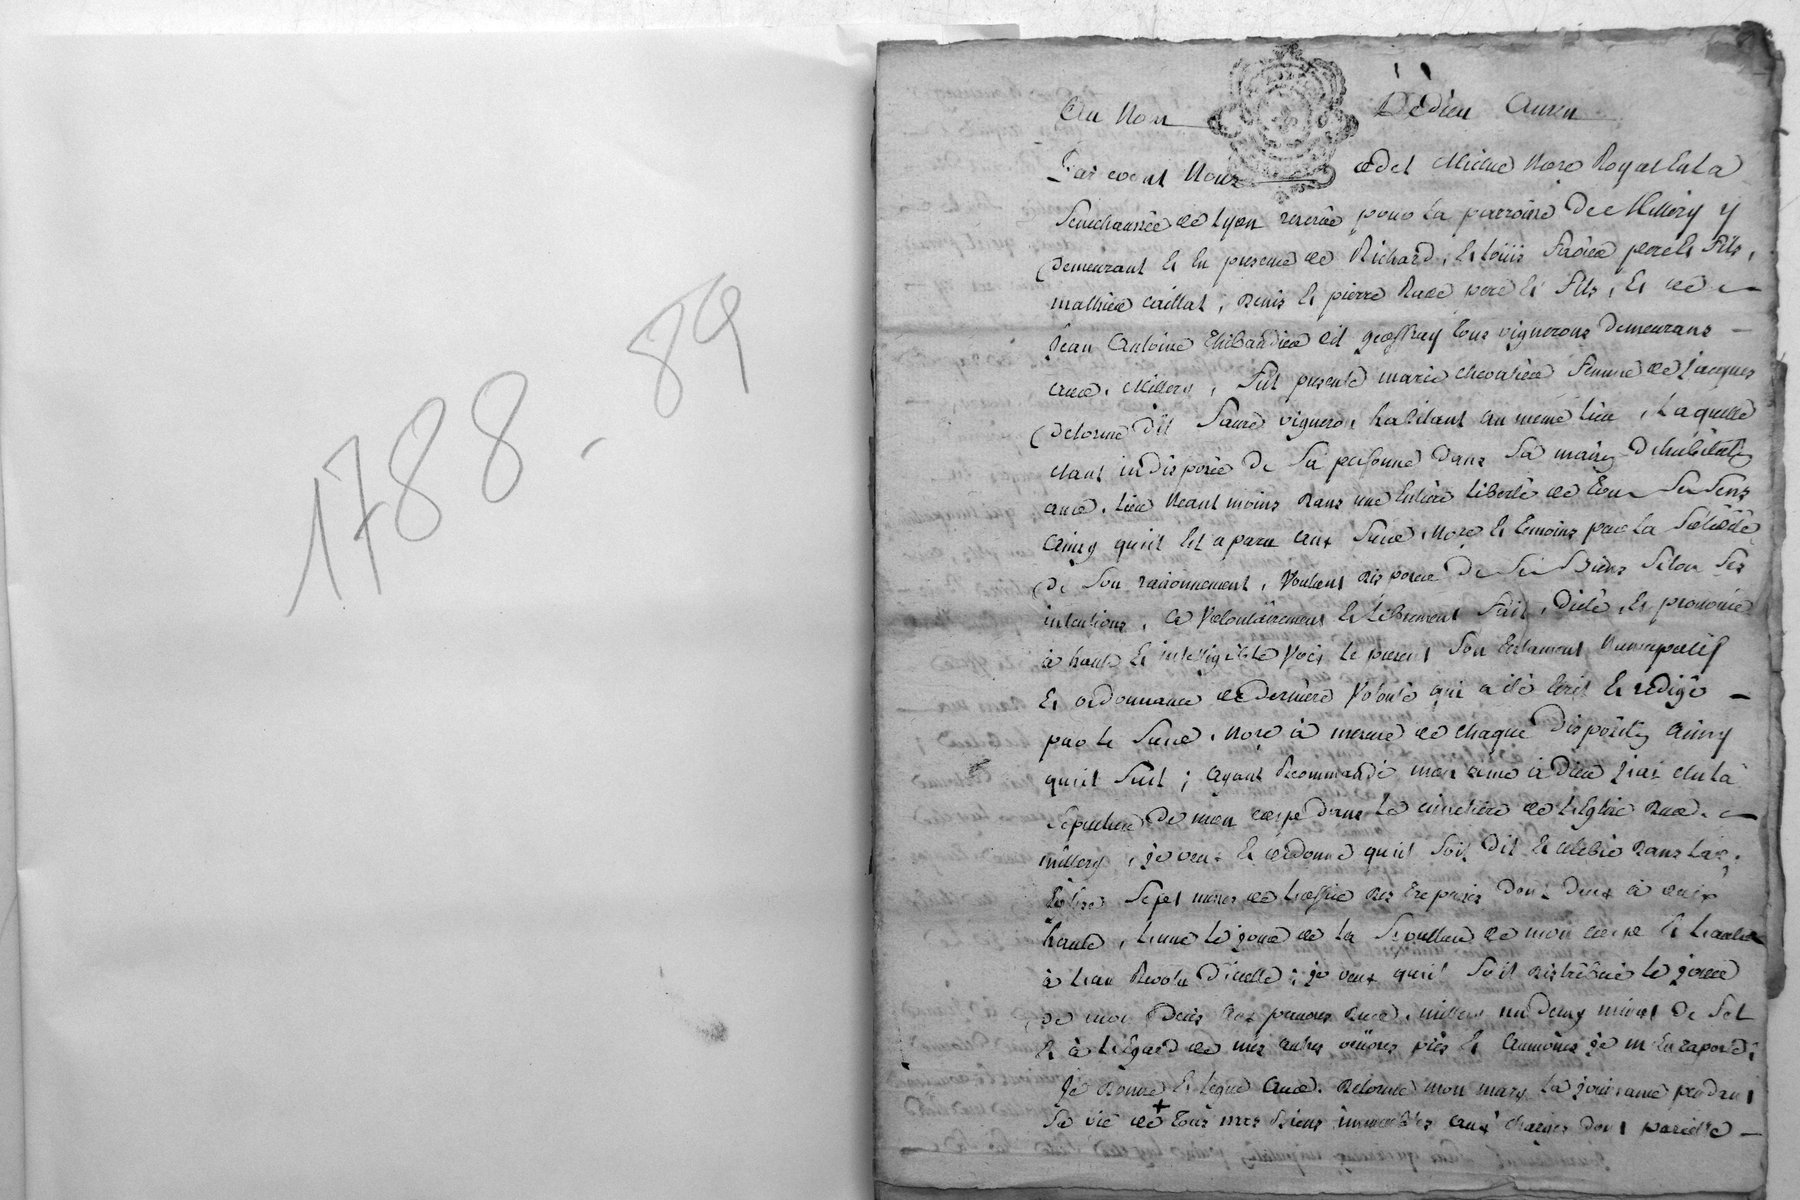 1788 - 89
Au Nom De dieu Amen
Par devant Nous Nore Royal En la
Senechaussée de Lyon reservé pour la parroisse De Millery y
demeurant Et En presence de Richard, Et Louis pere Et Fils,
mathieu Caillat, Denis Et pierre pere Et Fils, Et de
Jean Antoine Thibaudier dit Geoffray tous vignerons demeurans
aud. Millery, Fut presente marie chevalier Femme de Jacques
delorme Dit vigneron habitant au meme lieu, Laquelle
etant indisposée De Sa personne dans Sa maison D'habitation
aud. Lieu Neant moins Dans une Entiere Liberté de Tous Ses Sens
ainsy qu'il Est aparu aux Susd. Nore Et temoins par La Solidité
de Son raisonnement, Voulant disposer De Ses Biens Selon Ses
intentions, a Volontairement Et Librement Fait, Dicté, Et prononcé
à haute Et intelligible Voix Le present Son testament Nuncupatif
Et ordonnance de Derniere Volonté qui a été Ecrit Et redigé
par Le Susd. Nore à mesure de chaque Disposition ainsy
qu'il Suit ; ayant Recommandé mon ame à Dieu j'ai elu la
Sepulture De mon corps dans Le cimetiere de L'Eglise Dud.
millery, je veux Et ordonne qu'il Soit Dit Et celebré Dans lad.
Eglise Sept messes de L'office des Trepassés Dont Deux à voix
haute, L'une Le jour de La Sepulture de mon corps Et L'autre
à L'an Revolu D'icelle ; je veux qu'il Soit distribué Le jour
de mon Deces aux pauvres Dud. millery un Demy minot De Sel
Et à L'Egard de mes autres oeuvres pies Et Aumônes je m'En raporte ;
Je Donne Et Legue aud. Delorme mon mary La jouissance pendant
Sa vie de + Tous mes Biens immeubles aux charges Dont